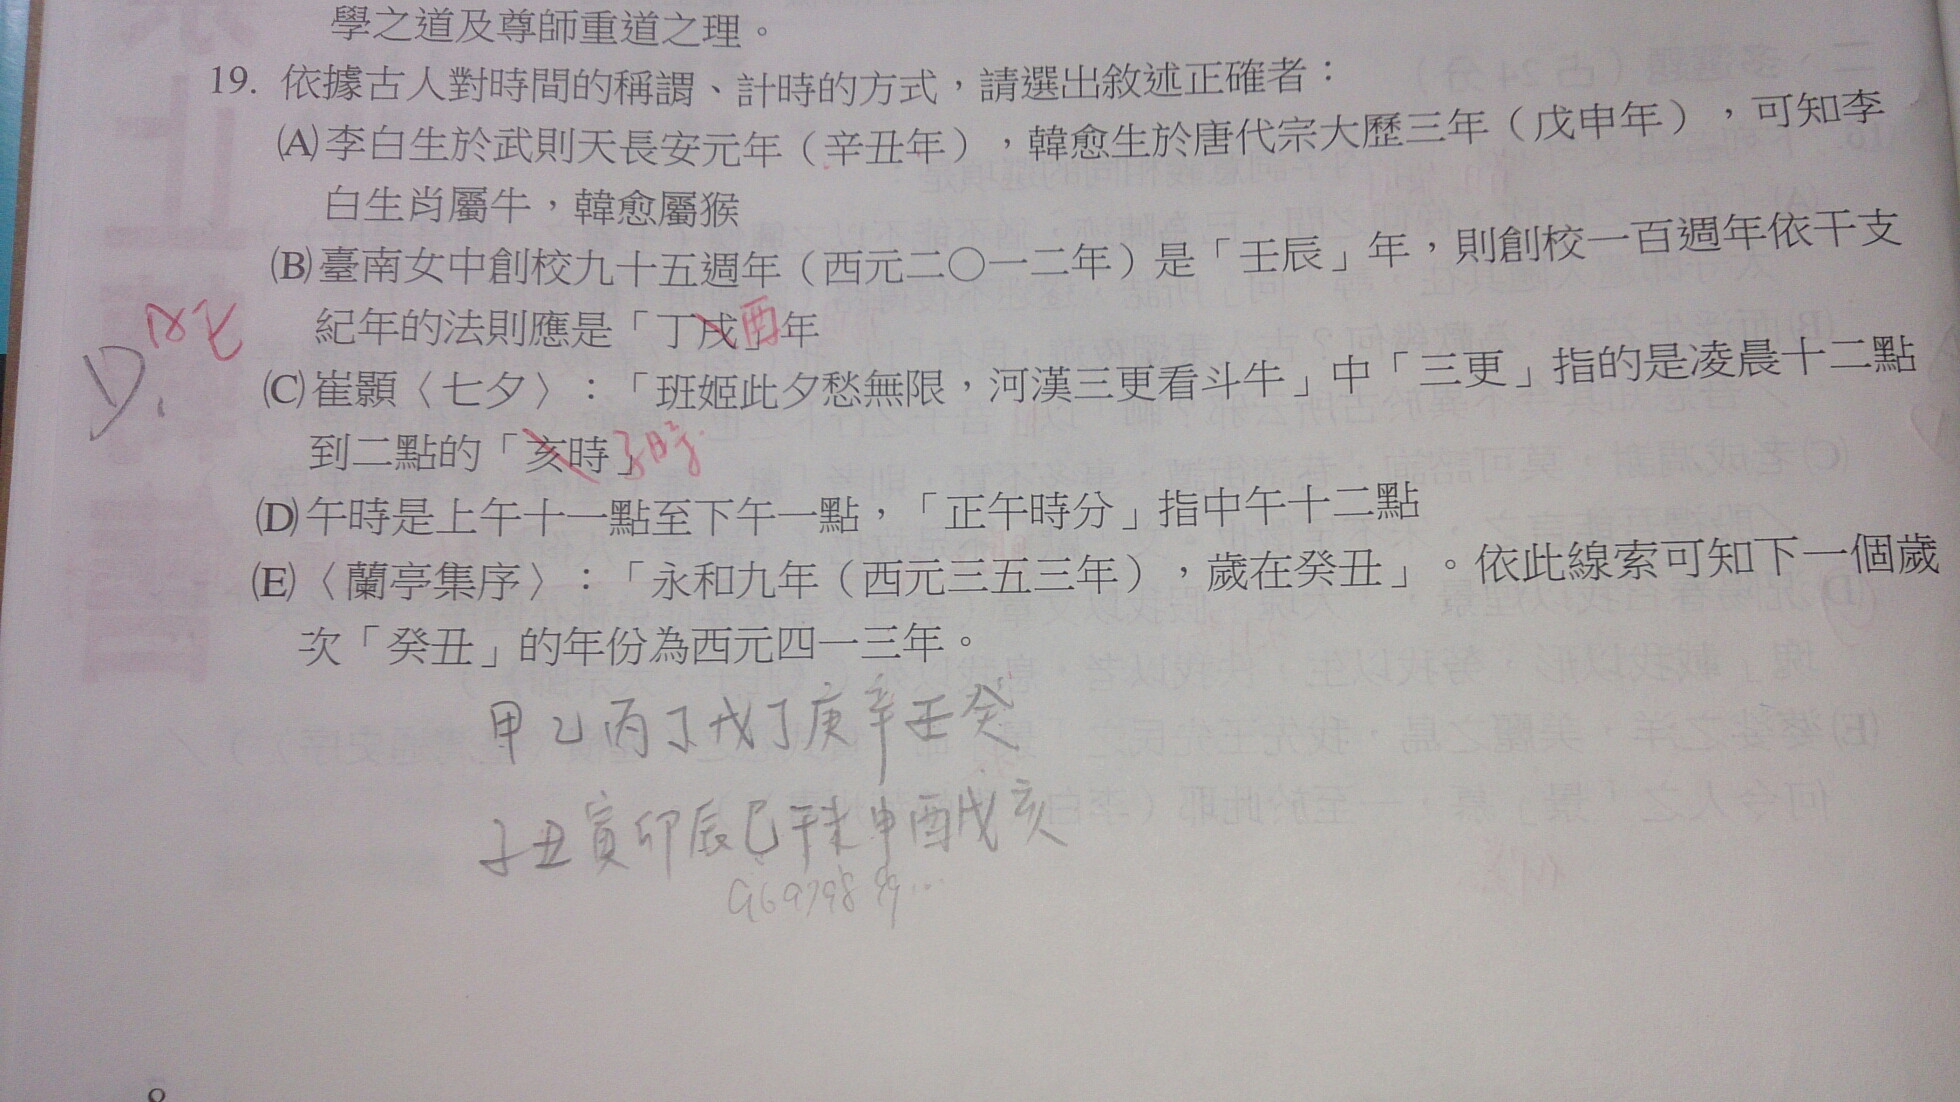 學之道及尊師重道之理。
19. 依據古人對時間的稱謂、計時的方式，請選出敘述正確者：
(A)李白生於武則天長安元年（辛丑年），韓愈生於唐代宗大歷三年（戊申年），可知李
白生肖屬牛，韓愈屬猴
(B)臺南女中創校九十五週年（西元二〇一二年）是「壬辰」年，則創校一百週年依干支
紀年的法則應是「丁戌」酉年
(C)崔顥〈七夕〉：「班姬此夕愁無限，河漢三更看斗牛」中「三更」指的是凌晨十二點
到二點的「亥時」子時
D.
(D)午時是上午十一點至下午一點，「正午時分」指中午十二點
(E)〈蘭亭集序〉：「永和九年（西元三五三年），歲在癸丑」。依此線索可知下一個歲
次「癸丑」的年份為西元四一三年。
甲乙丙丁戊丁庚辛壬癸
子丑寅卯辰巳午未申酉戌亥
96979899...
8